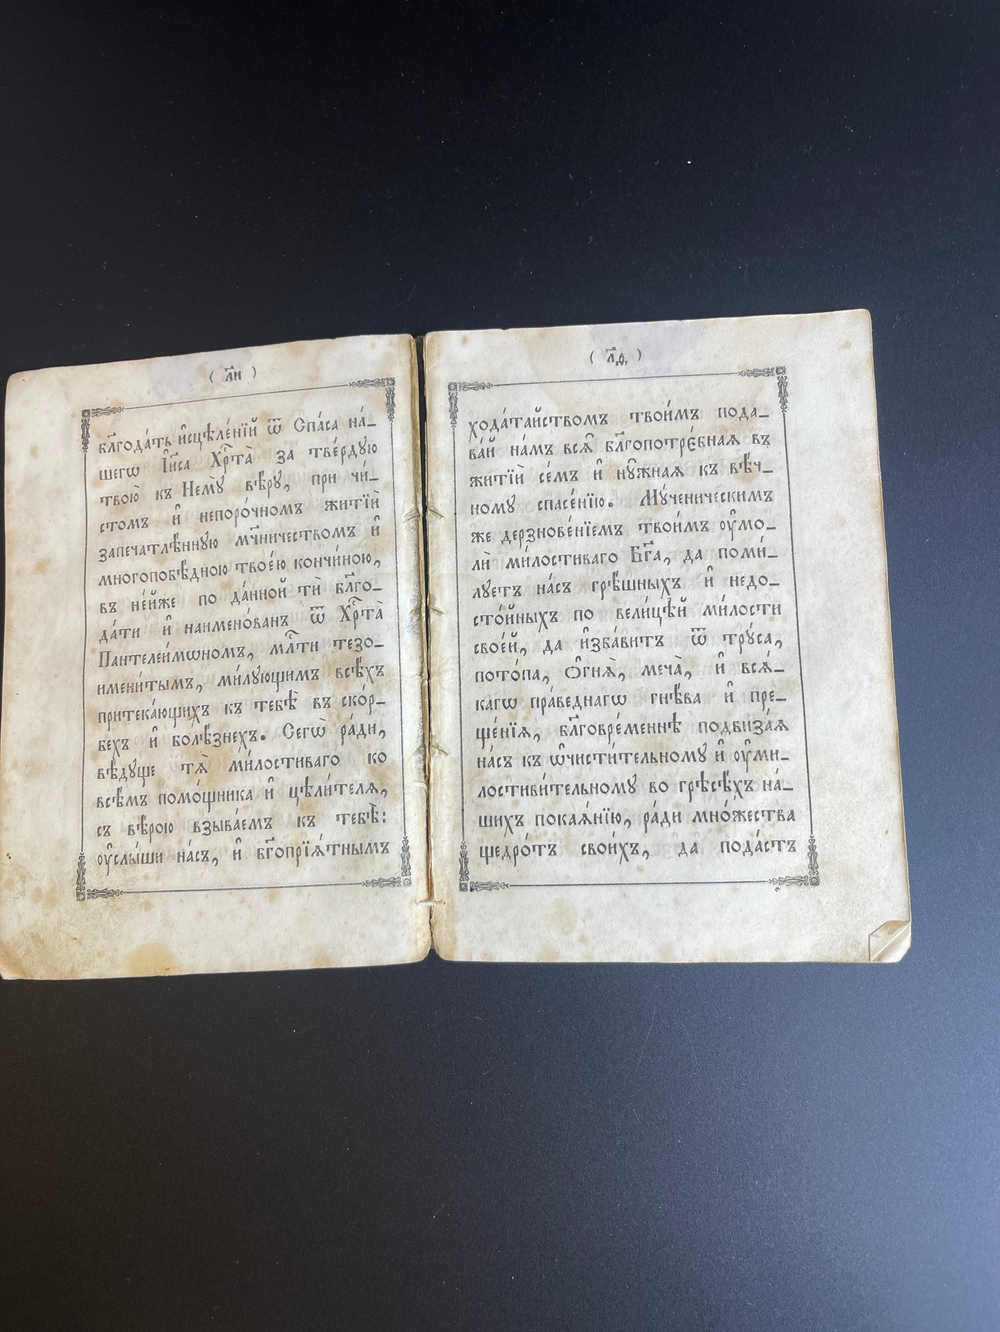 ( л҃и )
блг҃ода́ть и҆сцѣле́нїй ѿ Спа́са на́_
шегѡ І҆и҃са Хр҇та̀ за тве́рдую
твою̀ къ Нему̀ вѣ́ру, при чи́_
стомъ и҆ непоро́чномъ житїѝ
запечатлѣ́нную мч҃ничествомъ и҆
многопобѣ́дною твое́ю кончи́ною,
въ не́йже по да́нной тѝ блг҃о_
да́ти и҆ наимено́ванъ ѿ Хр҇та̀
Пантелеи́мѡномъ, мл҇ти тезо_
имени́тымъ, ми́лующимъ всѣ́хъ
притека́ющихъ къ тебѣ̀ въ ско́р_
бехъ и҆ болѣ́знехъ. Сегѡ̀ ра́ди,
вѣ́дуще тѧ̀ ми́лостиваго ко
всѣ́мъ помо́щника и҆ цѣли́телѧ,
съ вѣ́рою взыва́емъ къ тебѣ̀:
ᲂу҆слы́ши на́съ, и҆ бг҃опрїѧ́тнымъ
( л҃ѳ )
хода́тайствомъ твои́мъ пода_
ва́й на́мъ всѧ҄ блг҃опотрє́бнаѧ въ
житїѝ се́мъ и҆ ну̑жнаѧ къ вѣ́ч_
ному спасе́нїю. Му́ченическимъ
же дерзнове́нїемъ твои́мъ ᲂу҆мо_
лѝ ми́лостиваго Бг҃а, да поми́_
луетъ на́съ грѣ́шныхъ и҆ недо_
сто́йныхъ по вели́цѣй ми́лости
свое́й, да и҆зба́витъ ѿ тру́са,
пото́па, ѻ҆гнѧ̀, меча̀, и҆ всѧ́_
кагѡ пра́веднагѡ гнѣ́ва и҆ пре_
ще́нїѧ, блг҃овре́меннѣ подвиза́ѧ
на́съ къ ѡ҆чисти́тельному и҆ ᲂу҆ми_
лостиви́тельному во грѣсѣ́хъ на́_
шихъ покаѧ́нїю, ра́ди мно́жества
щедро́тъ свои́хъ, да пода́стъ